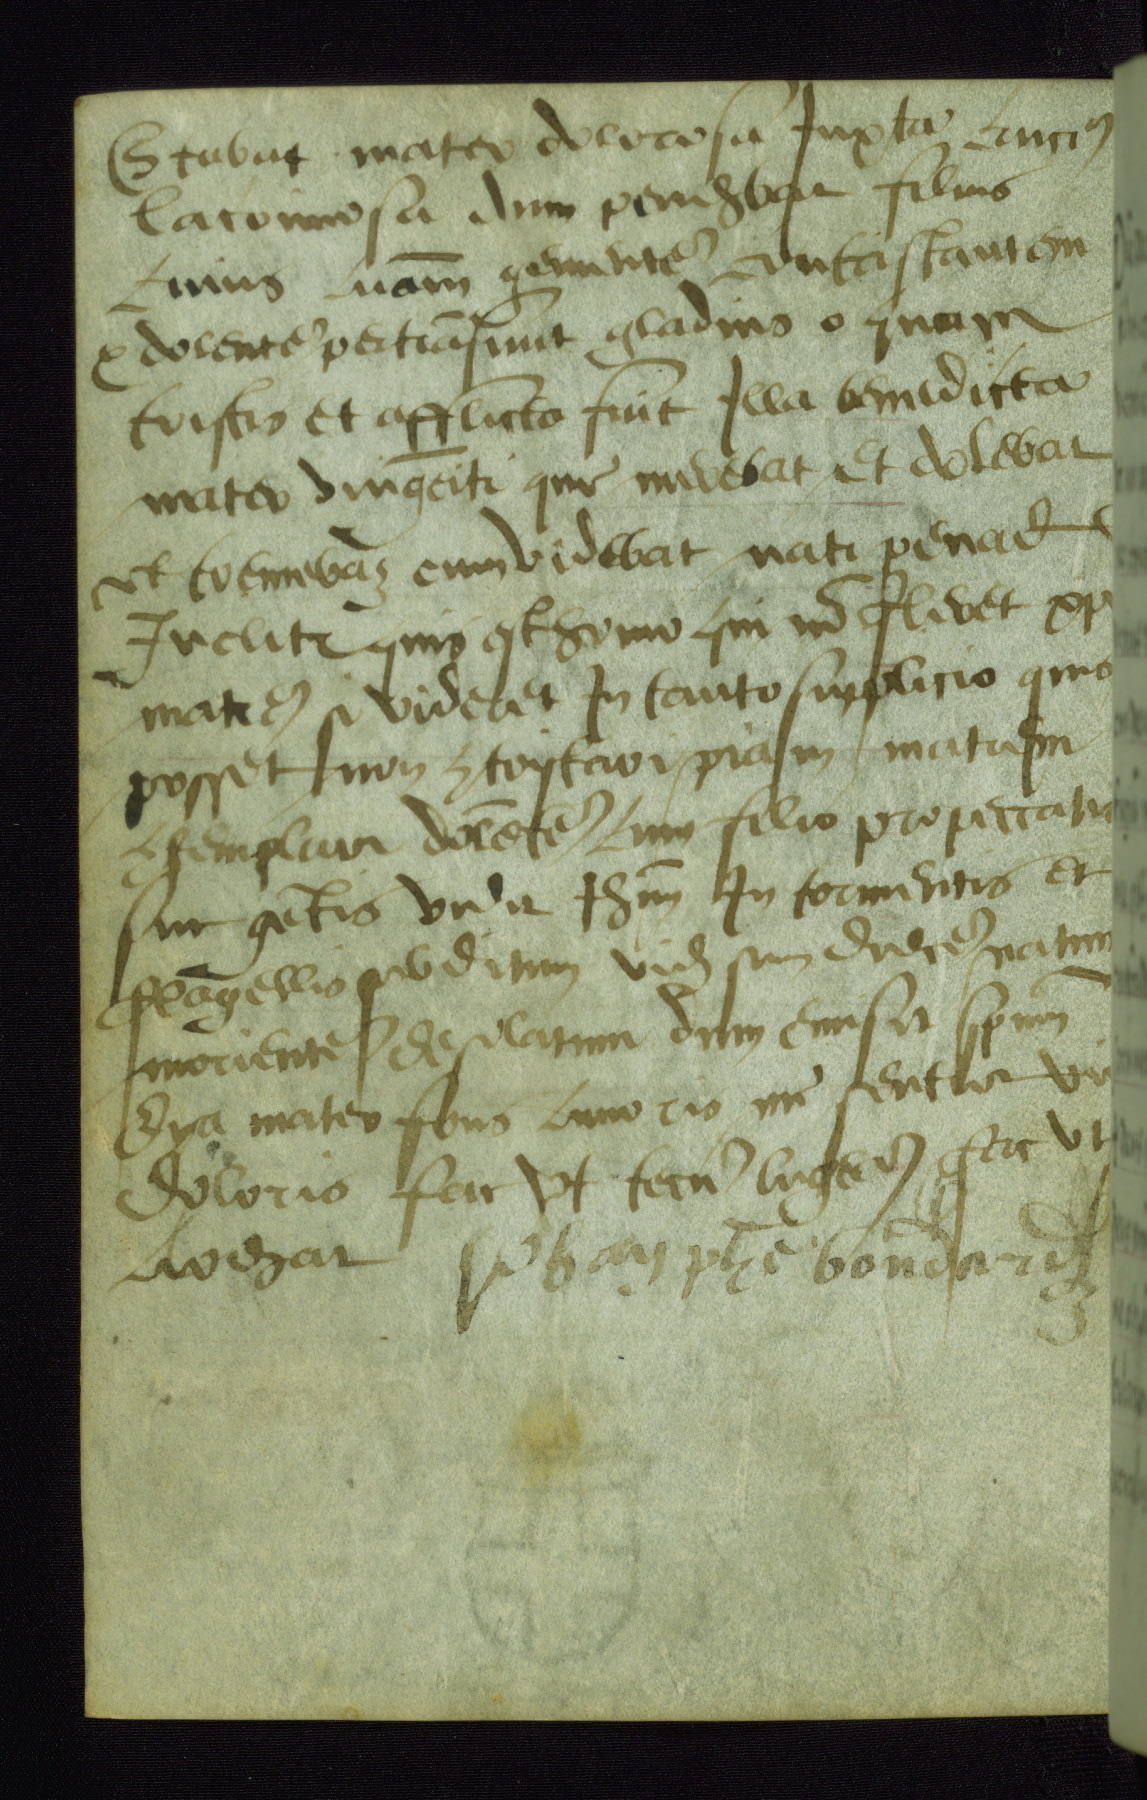 Stabat mater dolorosa Juxta crucē
lacrimosa dum pendebat filius
cuius auām gementē contristantem
& dolentē pertrāsiuit gladius o quam
tristis et afflicta fuit Illa benedicta
mater vnigeniti que merebat et dolebat
et tremebat cum videbat nati penas
Incliti quis est homo qui nō fleret xp̄i
matrē si videret In tanto supplicio quis
posset non 9tristari piam matrem
9templari dolētē cum filio pro peccatis
sue gētis vidit Ihm̄ In tormentis et
flagellis subditum vidit suum dulcē natum
morientē desolatum dum emisit spm̄
Eya mater fons amoris me sentire vim
doloris fac vt tecū lugeā fac vt